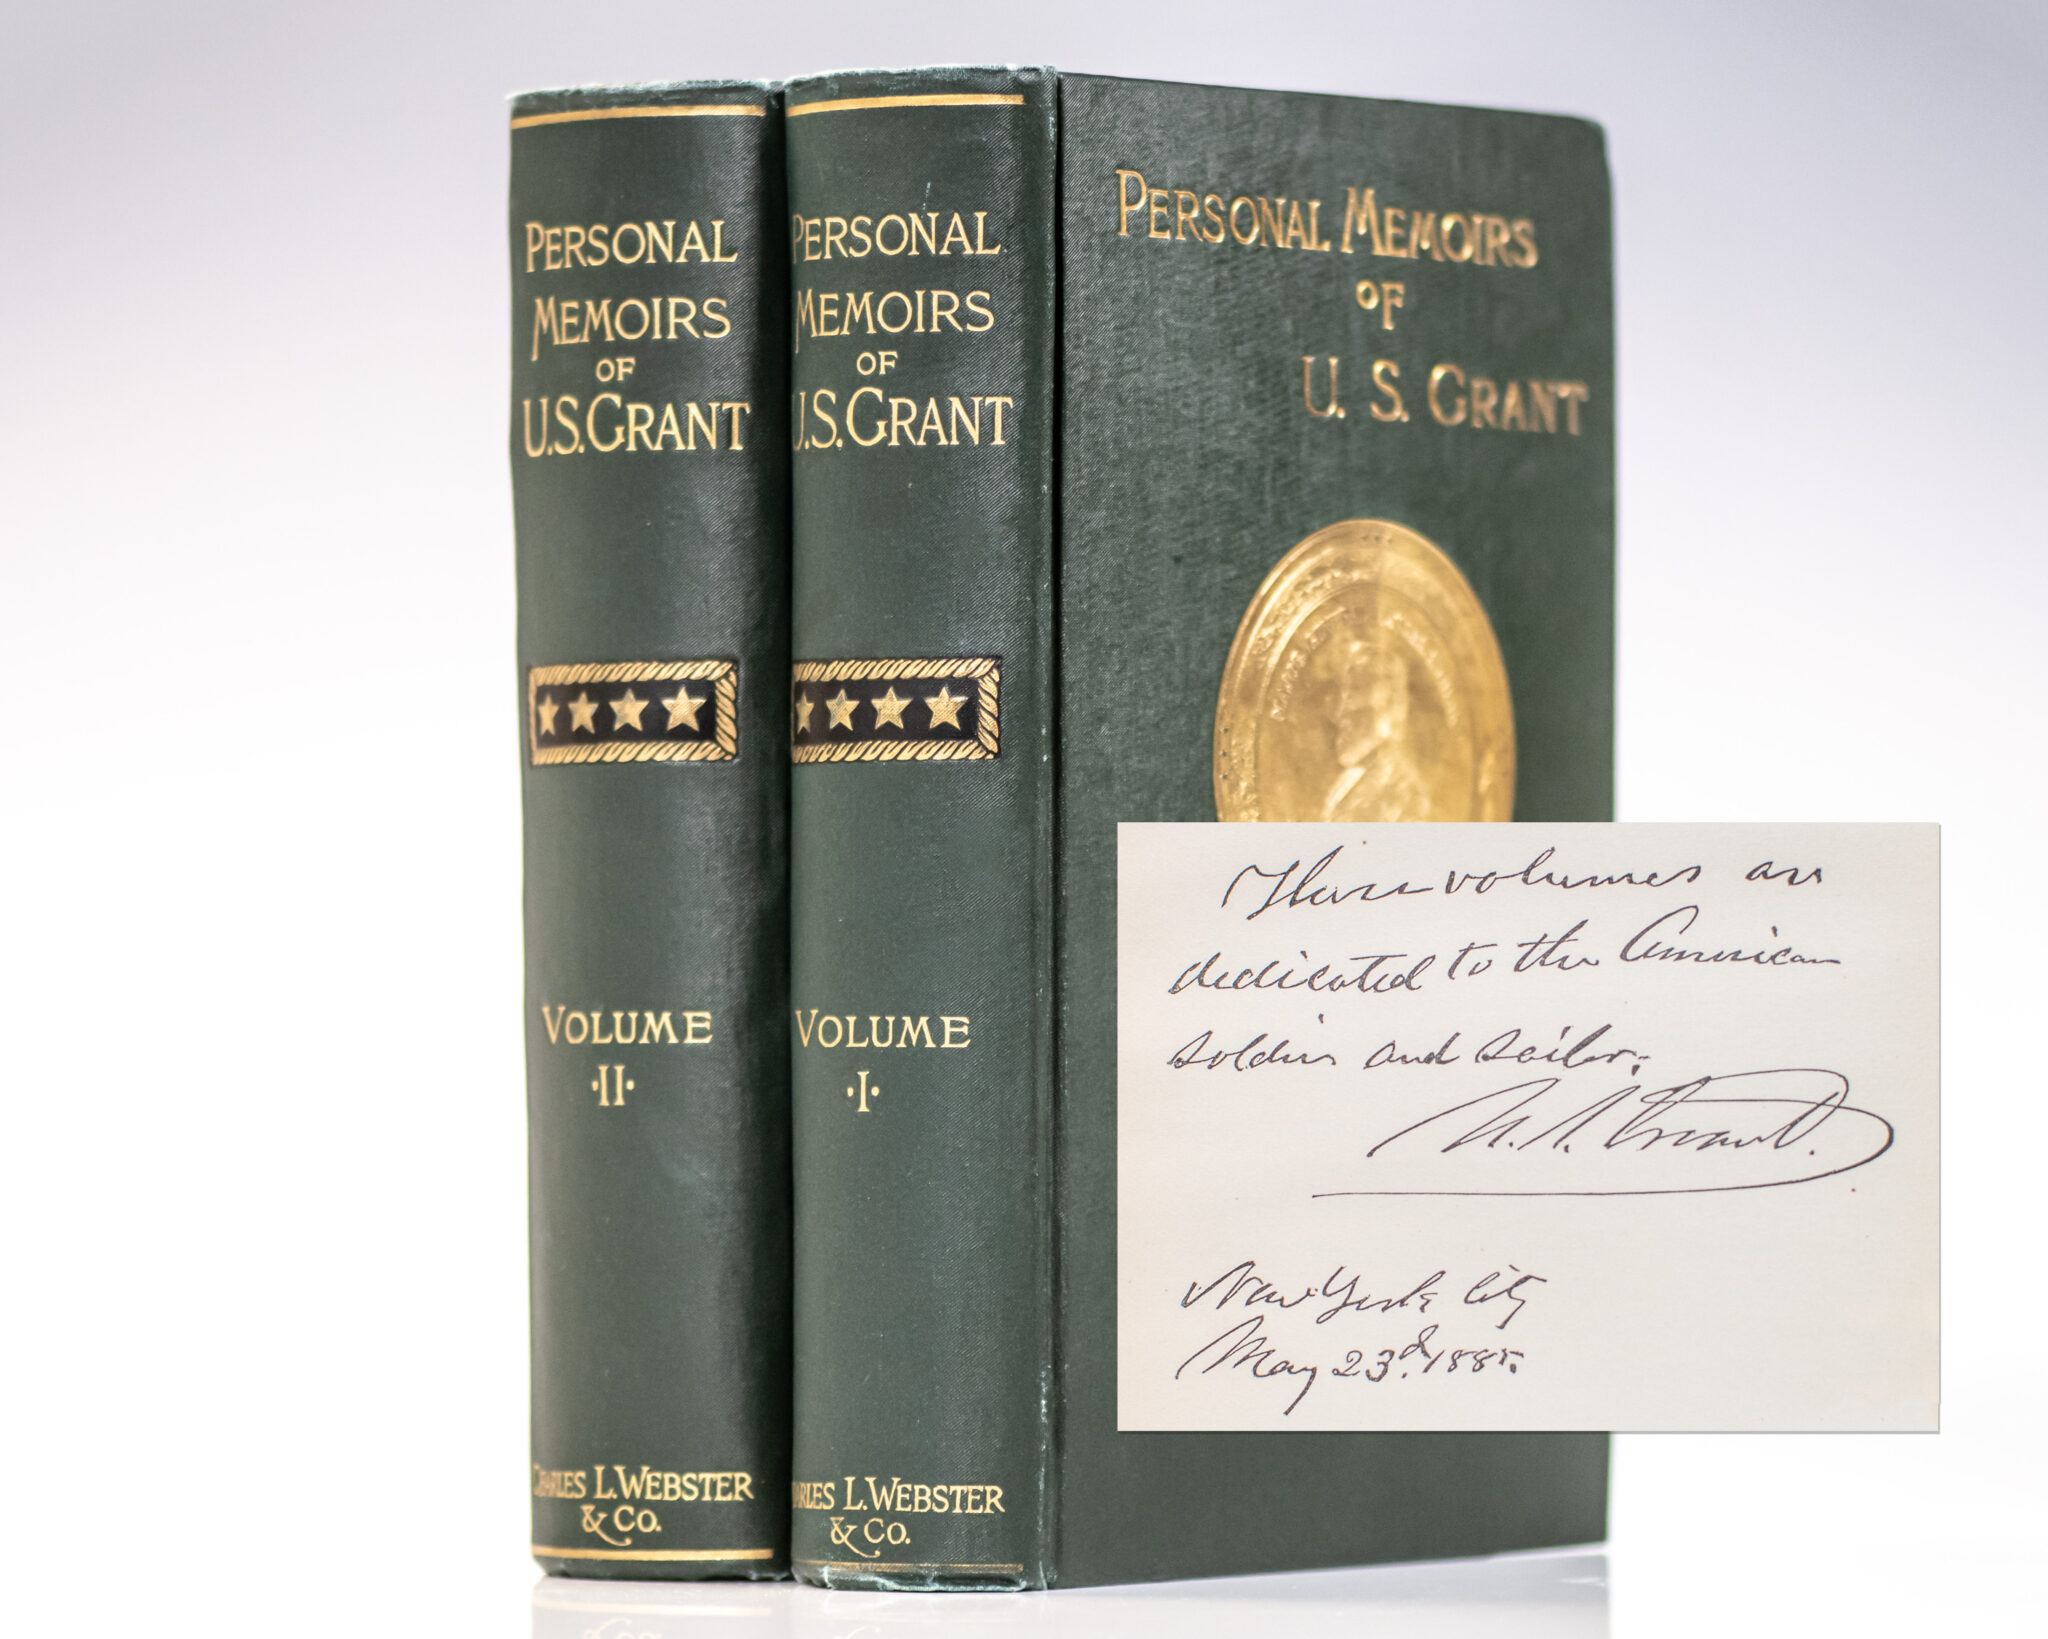 PERSONAL
MEMOIRS
OF
U.S. GRANT
VOLUME
·II·
CHARLES L. WEBSTER
& CO.
PERSONAL
MEMOIRS
OF
U.S. GRANT
VOLUME
·I·
CHARLES L. WEBSTER
& CO.
PERSONAL MEMOIRS
OF
U. S. GRANT
These volumes are
dedicated to the American
soldier and sailor.
U. S. Grant.
New York City
May 23d. 1885.